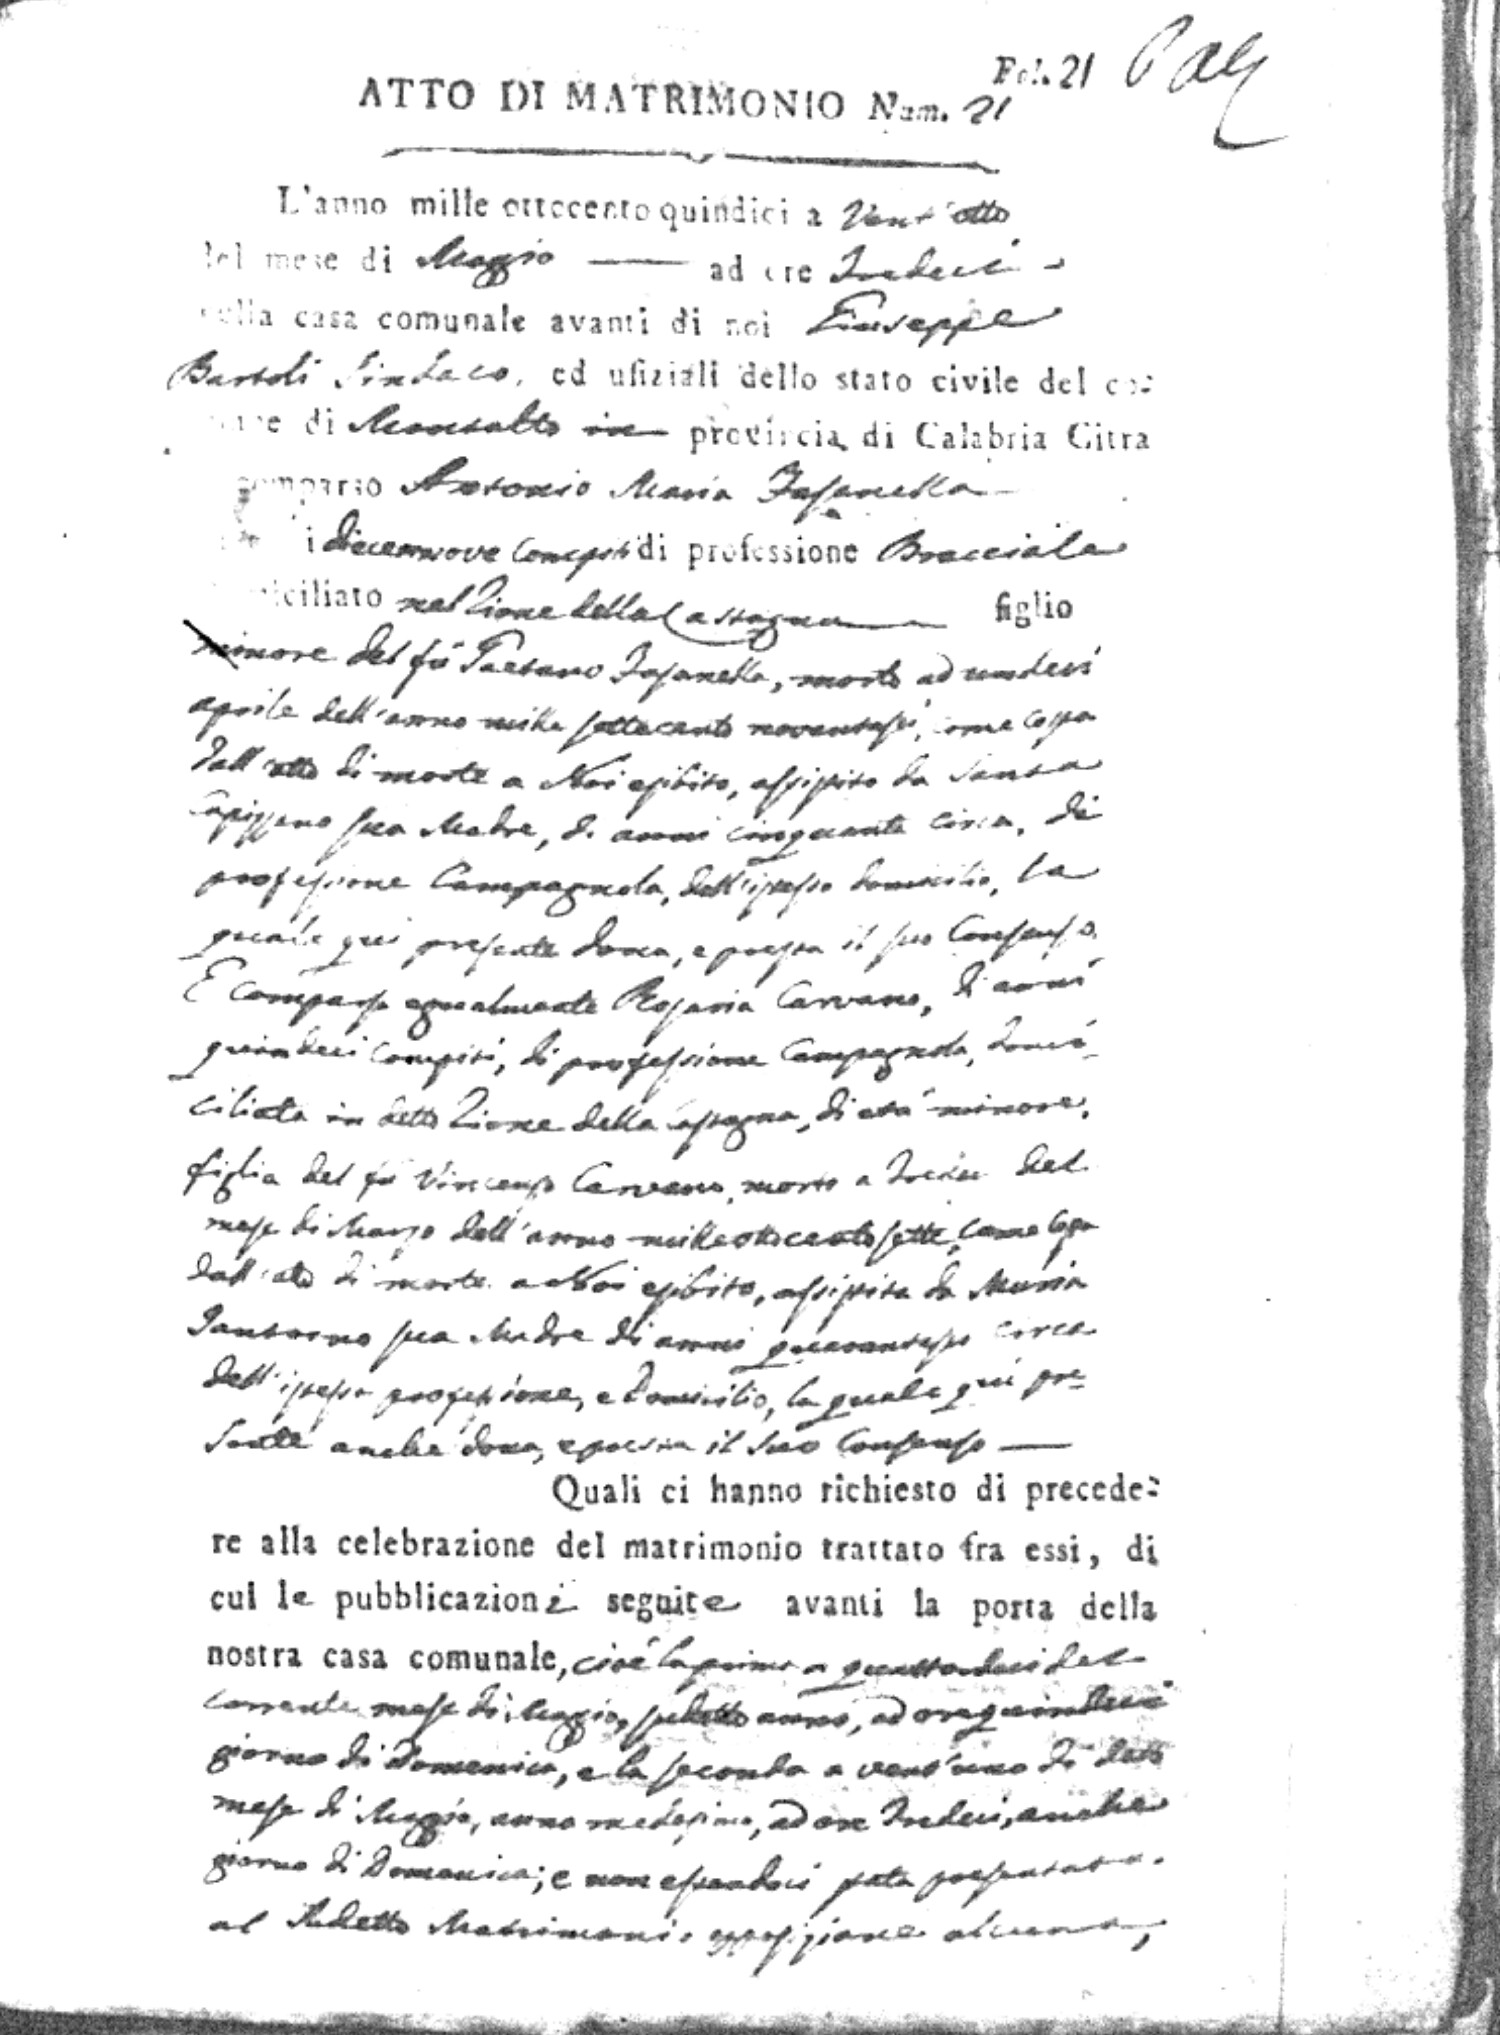 Fol. 21
ATTO DI MATRIMONIO Num. 21
L'anno mille ottocento quindici a Vent'otto
del mese di Maggio — ad ore Tredeci
nella casa comunale avanti di noi Giuseppe
Bartoli Sindaco, ed ufiziali dello stato civile del co=
mune di Montalto in provincia di Calabria Citra
comparso Antonio Maria Fasanella
i diecennove compiti di professione Bracciale
miciliato nel Rione della Castagna figlio
minore del fù Gaetano Fasanella, morto ad undeci
aprile dell'anno mille settecento novantasei, come costa
dall'atto di morte a Noi esibito, assistito da Santa
sua Madre, di anni cinquanta circa, di
professione Campagnola, dell'istesso domicilio, la
quale qui presente dona, e presta il suo Consenso.
E comparsa egualmente Rosaria Carvano, di anni
quindeci compiti, di professione Campagnola, domi=
ciliata in detto Rione della Castagna, di età minore,
figlia del fù Vincenzo Carvano, morto a Tredici del
mese di Marzo dell'anno milleottocento sette, come costa
dall'atto di morte a Noi esibito, assistita da Maria
Santorno sua Madre di anni quarantasei circa
dell'istessa professione, e domicilio, la quale qui pre=
sente anche dona, e presta il suo Consenso —
Quali ci hanno richiesto di precede=
re alla celebrazione del matrimonio trattato fra essi, di
cui le pubblicazioni seguite avanti la porta della
nostra casa comunale, cioè la prima a quattordeci del
corrente mese di Maggio, sudetto anno, ad ore quindeci
giorno di Domenica, e la seconda a vent'uno di detto
mese di Maggio, anno medesimo, ad ore Tredeci, anche
giorno di Domenica; e non essendoci stata presentata
al sudetto Matrimonio opposizione alcuna,